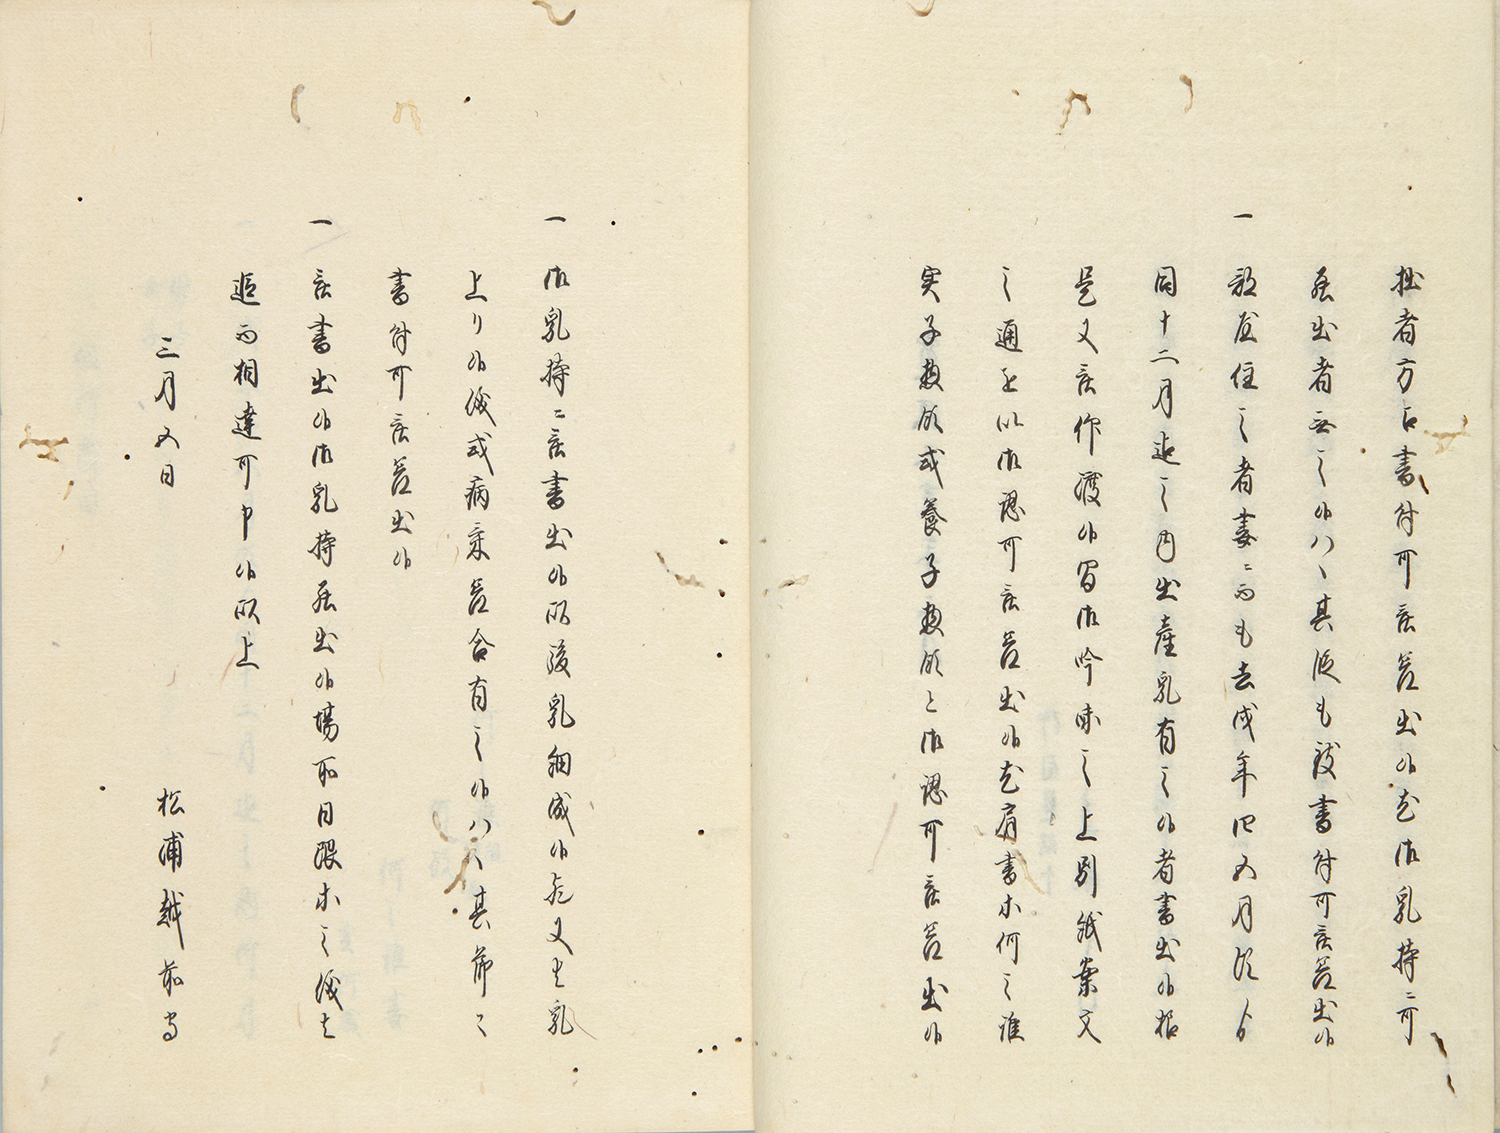 拙者方占書付可被差出候尤御乳持ニ可
罷出者無之候ハヽ其段も致書付可被差出候
一 部屋住之者妻ニ而も去戌年四五月頃ゟ
同十二月迄之内出産乳有之候者書出候様
是又被仰渡候間御吟味之上別紙案文
之通を以御認可被差出候尤肩書等何之誰
実子惣領或養子惣領と御認可被差出候
一 御乳持ニ被書出候以後乳細成候歟又は乳
上り候儀或病気差合有之候ハヽ其節々
書付可被差出候
一 被書出候御乳持罷出候場所日限等之儀は
追而相達可申候以上
三月五日
松浦越前守